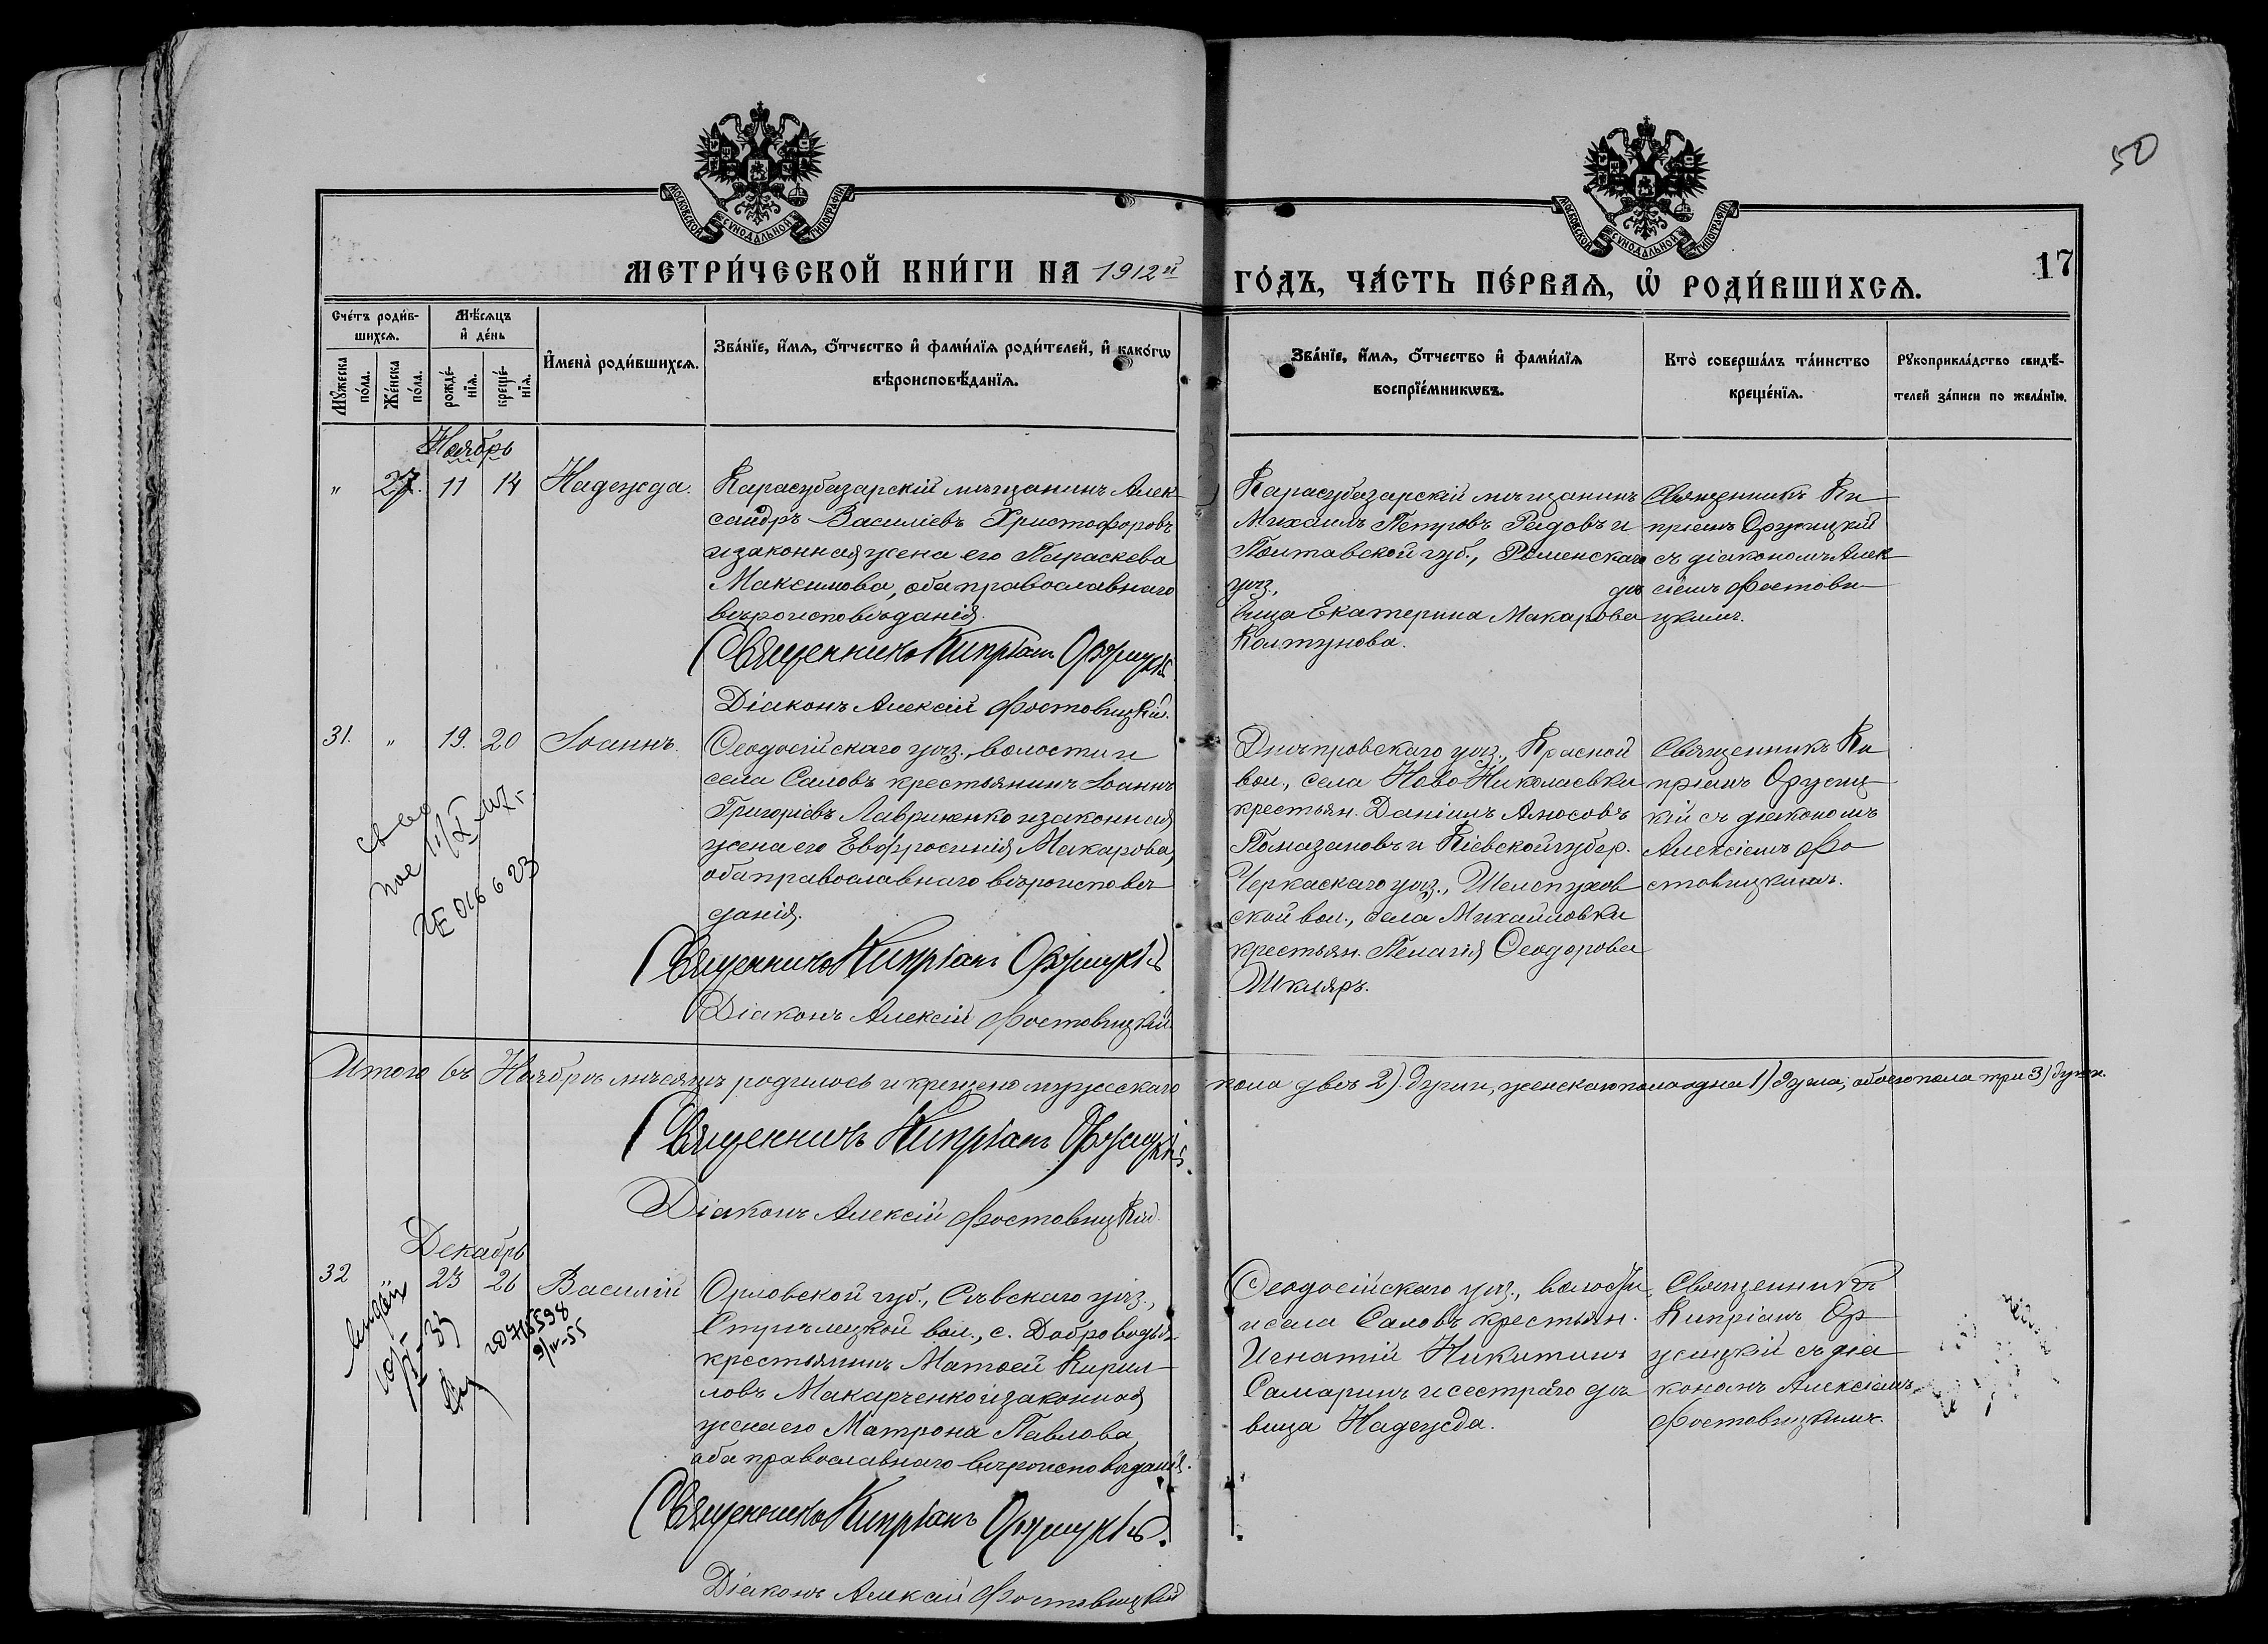 50
МОСКОВСКОЙ СѴНОДАЛЬНОЙ ТИПОГРАФІИ
МОСКОВСКОЙ СѴНОДАЛЬНОЙ ТИПОГРАФІИ
МЕТРИ́ЧЕСКОЙ КНИ́ГИ НА 1912й ГО́ДЪ, ЧА́СТЬ ПЕ́РВАѦ, Ѡ҆ РОДИ́ВШИХСѦ. 17
Сче́тъ роди́в-
шихсѧ.
Мꙋ́жеска по́ла.
Же́нска по́ла.
Мѣ́сѧцъ
и҆ де́нь
рожде́-
нїѧ.
креще́-
нїѧ.
И҆мена̀ роди́вшихсѧ.
Зва́нїе, и҆́мѧ, ѻ҆́тчество и҆ фами́лїѧ роди́телей, и҆ како́гѡ
вѣроисповѣ́данїѧ.
Зва́нїе, и҆́мѧ, ѻ҆́тчество и҆ фами́лїѧ
воспрїе́мникѡвъ.
Кто̀ соверша́лъ та́инство
креще́нїѧ.
Рꙋкоприкла́дство свидѣ́-
телей за́писи по жела́нїю.
Ноябрь
" 27. 11 14 Надежда.
Карасубазарскій мѣщанинъ Алек-
сандръ Василіевъ Христофоровъ
и законная жена его Параскева
Максимова, оба православнаго
вѣроисповѣданія.
Священникъ Кипріанъ
Діаконъ Алексій Фостовицкій.
Карасубазарскій мѣщанинъ
Михаилъ Петровъ Рядовъ и
Полтавской губ., Роменскаго
уѣз., дѣ
вица Екатерина Макарова
Колтунова.
Священникъ Ки
пріанъ
съ діакономъ Алек
сіемъ Фостови
цкимъ.
31. " 19. 20 Іоаннъ.
Ѳеодосійскаго уѣз., волости и
села Саловъ крестьянинъ Іоаннъ
Григоріевъ Лавриненко и законная
жена его Евфросинія Макарова,
оба православнаго вѣроисповѣ
данія.
Священникъ Кипріанъ
Діаконъ Алексій Фостовицкій.
Днѣпровскаго уѣз., Красной
вол., села Ново-Николаевки
крестьян. Даніилъ Амосовъ
Помазановъ и Кіевской губер.
Черкаскаго уѣз., Шелепухов
ской вол., села Михайловки
крестьян. Пелагія Ѳеодорова
Шкляръ.
Священникъ Ки
пріанъ
кій съ діакономъ
Алексіемъ Фо
стовицкимъ.
Итого въ Ноябрѣ мѣсяцѣ родилось и крещено мужескаго пола двѣ 2) души, женскаго пола одна 1) душа; обоего пола три 3) души.
Священникъ Кипріанъ
Діаконъ Алексій Фостовицкій.
Декабрь
32 23 26 Василій
Орловской губ., Сѣвскаго уѣз.,
Стрѣлецкой вол., с. Доброводья
крестьянинъ Матѳей Кирил-
ловъ Макарченко и законная
жена его Матрона Павлова,
оба православнаго вѣроисповѣданія.
Священникъ Кипріанъ
Діаконъ Алексій Фостовицкій
Ѳеодосійскаго уѣз., волости
и села Саловъ крестьян.
Игнатій Никитинъ
Самаринъ и сестра его дѣ
вица Надежда.
Священникъ
Кипріанъ
съ діа
кономъ Алексіемъ
Фостовицкимъ.